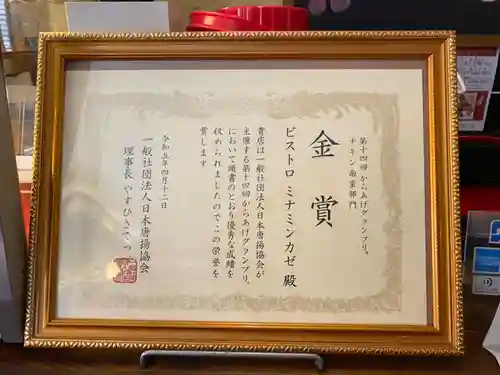 第十四回からあげグランプリ®
チキン南蛮部門
金賞
ビストロ ミナミンカゼ 殿
貴店は一般社団法人日本唐揚協会が
主催する第十四回からあげグランプリ®
において頭書のとおり優秀な成績を
収められましたのでこの栄誉を
賞します
令和五年四月十二日
一般社団法人日本唐揚協会
理事長 やすひさてっぺい